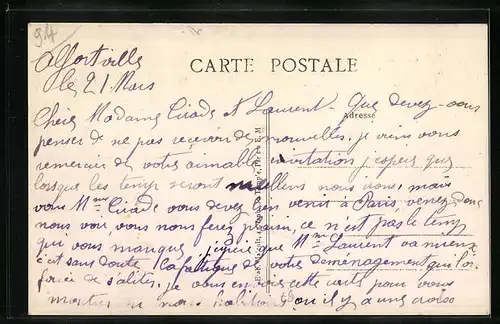 94
Alfortville
le 21 Mars
CARTE POSTALE
Adresse
Chers Madame et Laurent. Que devez-vous
penser de ne pas recevoir de nouvelles. je viens vous
remercier de votre aimable invitation j'espère que
lorsque les temps seront meilleurs nous irons, mais
vous Mme vous devez bien venir à Paris, venez donc
nous voir vous nous ferez plaisir, ce n'est pas le temps
qui vous manque. j'espère que Mme Laurent va mieux
c'est sans doute la fatigue de votre déménagement qui l'a
forcée de s'aliter. je vous envoie cette carte pour vous
montrer où nous habitons où il y a une croix